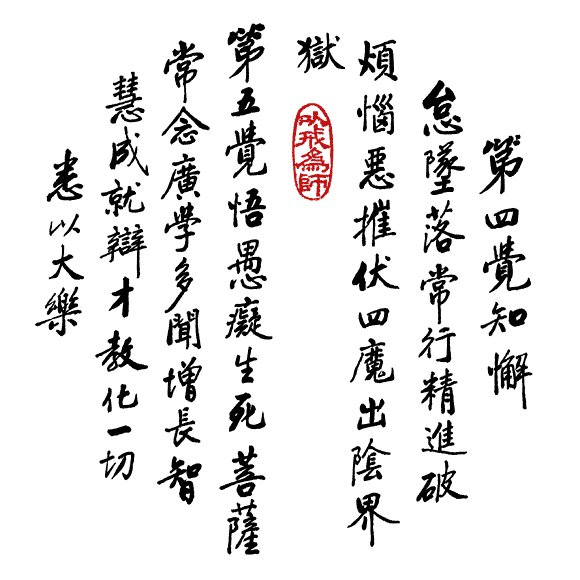 第四覺知懈
怠墜落常行精進破
煩惱惡摧伏四魔出陰界
獄
以戒為師
第五覺悟愚癡生死菩薩
常念廣學多聞增長智
慧成就辯才教化一切
悉以大樂